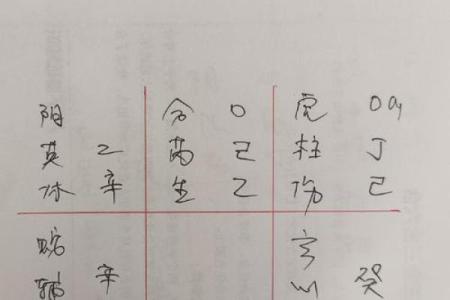 阴 合 O 虎 O马
英 乙 芮 己 柱 丁
休 辛 生 乙 伤 己
蛇 玄
辅 辛 心 癸